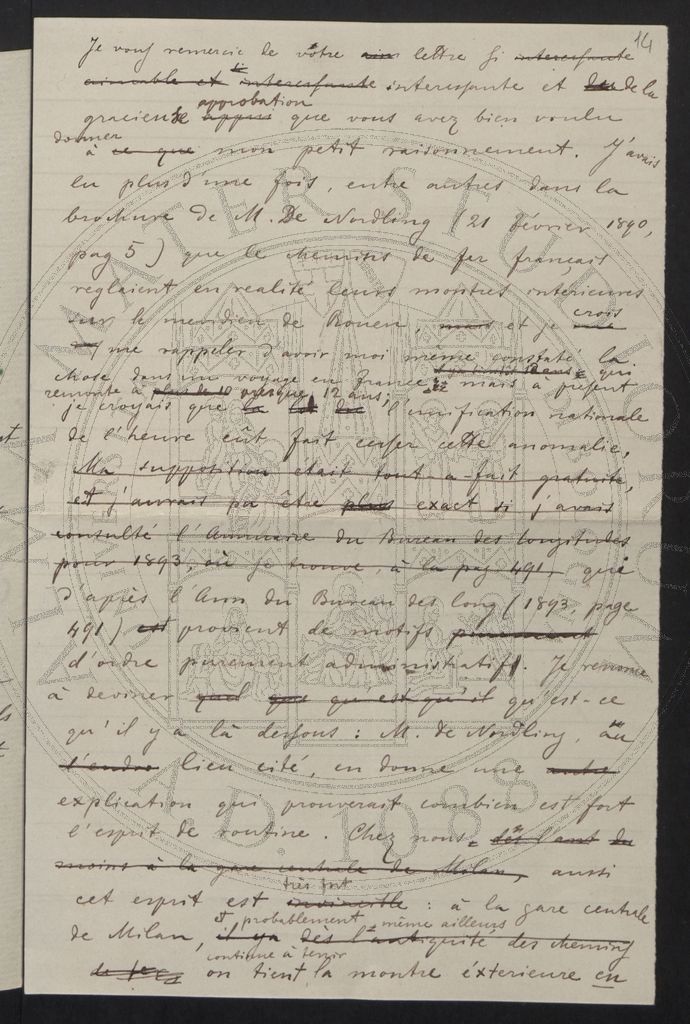 14
Je vous remercie de vôtre lettre si interessante
aimable et si interessante interessante et de la
approbation
gracieuse appui que vous avez bien voulu
donner
à ce que mon petit raisonnement. J'avais
lu plus d'une fois, entre autres dans la
brochure de M. De Nordling (21 février 1890,
pag 5) que le chemins de fer français
reglaient en realité leurs montres interieures
sur le meridien de Rouen, mais et je crois
me rappeler d'avoir moi même constaté la
chose dans un voyage en France qui
remonte à plus de 10 presque 12 ans; mais à présent
je croyais que l'unification nationale
de l'heure eût fait cesser cette anomalie.
Ma supposition etait tout-a-fait gratuite,
et j'aurais pu être plus exact si j'avais
consulté l'Annuaire du Bureau des longitudes
pour 1893, où je trouve, à la pag 491, que
d'après l'Ann du Bureau des long (1893 page
491) est provient de motifs purement
d'ordre purement administratif. Je renonce
à deviner quel qu'est qu'il qu'est-ce
qu'il y a là dessous: M. de Nordling, au
lieu cité, en donne une autre
explication qui prouverait combien est fort
l'esprit de routine. Chez nous, du
moins à la gare centrale de Milan, aussi
très fort
cet esprit est invincible: à la gare centrale
et probablement même ailleurs
de Milan, il y a dès l'antiquité des chemins
continue à tenir
de fer on tient la montre éxterieure en